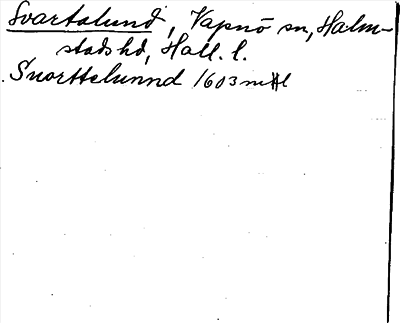 Svartalund, Vapnö sn, Halm-
stads hd, Hall. l.
Suorttelunnd 1603 mtl